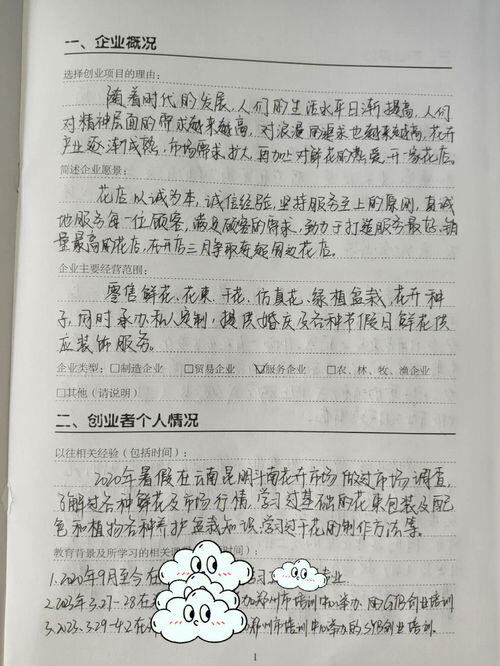 一、企业概况
选择创业项目的理由：
随着时代的发展,人们的生活水平日渐提高,人们
对精神层面的需求越来越高,对浪漫的追求也越来越高,花卉
产业逐渐成熟,市场需求扩大,再加上对鲜花的热爱,开一家花店。
简述企业愿景：
花店以诚为本,诚信经验,坚持服务至上的原则,真诚
地服务每一位顾客,满足顾客的需求,努力于打造服务最好、销
量最高的花店,在开店三月争取夺超周边花店。
企业主要经营范围：
零售鲜花、花束、干花、仿真花、绿植盆栽、花卉种
子,同时承办私人定制,提供婚庆及各种节假日鲜花供
应装饰服务。
企业类型：□制造企业 □贸易企业 ☑服务企业 □农、林、牧、渔企业
□其他（请说明）
二、创业者个人情况
以往相关经验（包括时间）：
2020年暑假在云南昆明斗南花卉市场做过市场调查,
了解过各种鲜花及市场行情,学习过基础的花束包装及配
色和植物各种养护盆栽知识,学习过干花的制作方法等。
教育背景及所学习的相关 时间）：
1.2020年9月至今在 习 专业
2.2023年3.27-28在 加郑州市培训中心举办的GYB创业培训
3.2023.3.29-4.2在 郑州市培训中心举办的SYB创业培训.
1